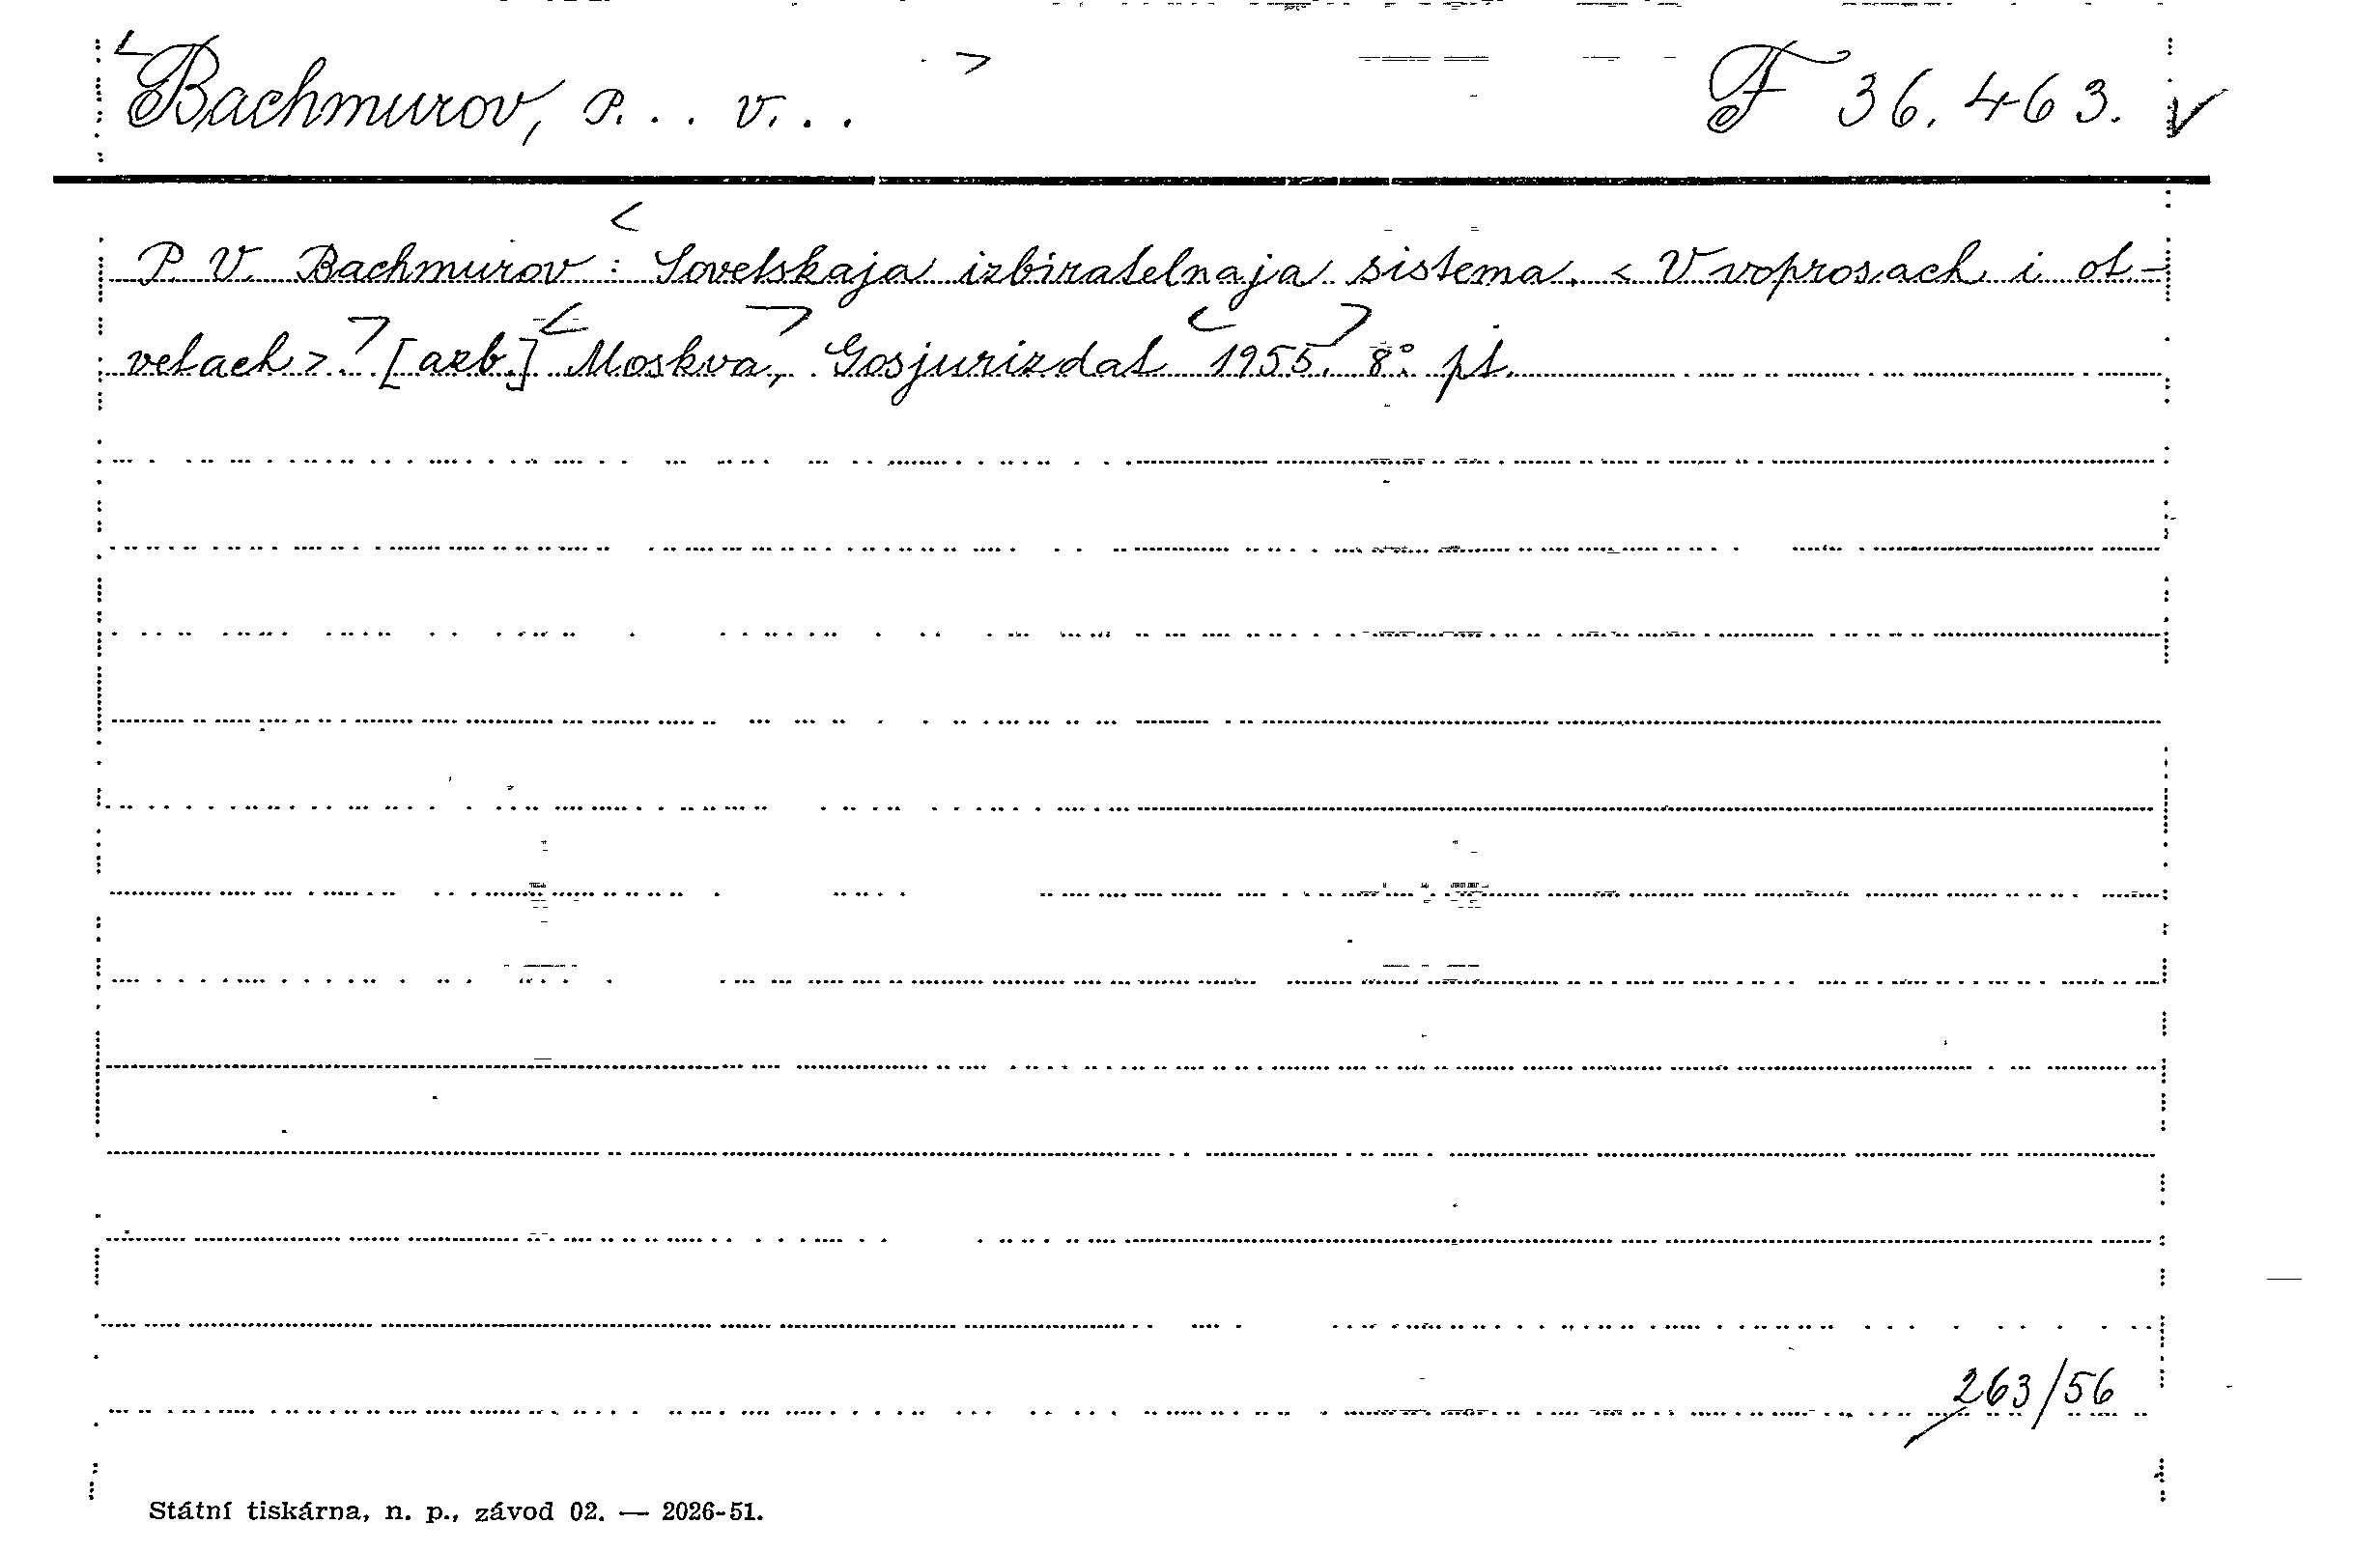 <Bachmurov, P... V...> F 36.463. ✓
P. V. Bachmurov: <Sovetskaja izbiratelnaja sistema. <V voprosach i ot-
vetach>.> [azb.] <Moskva,> Gosjurizdat <1955.> 8°. pt.
263/56
Státní tiskárna, n. p., závod 02. — 2026-51.